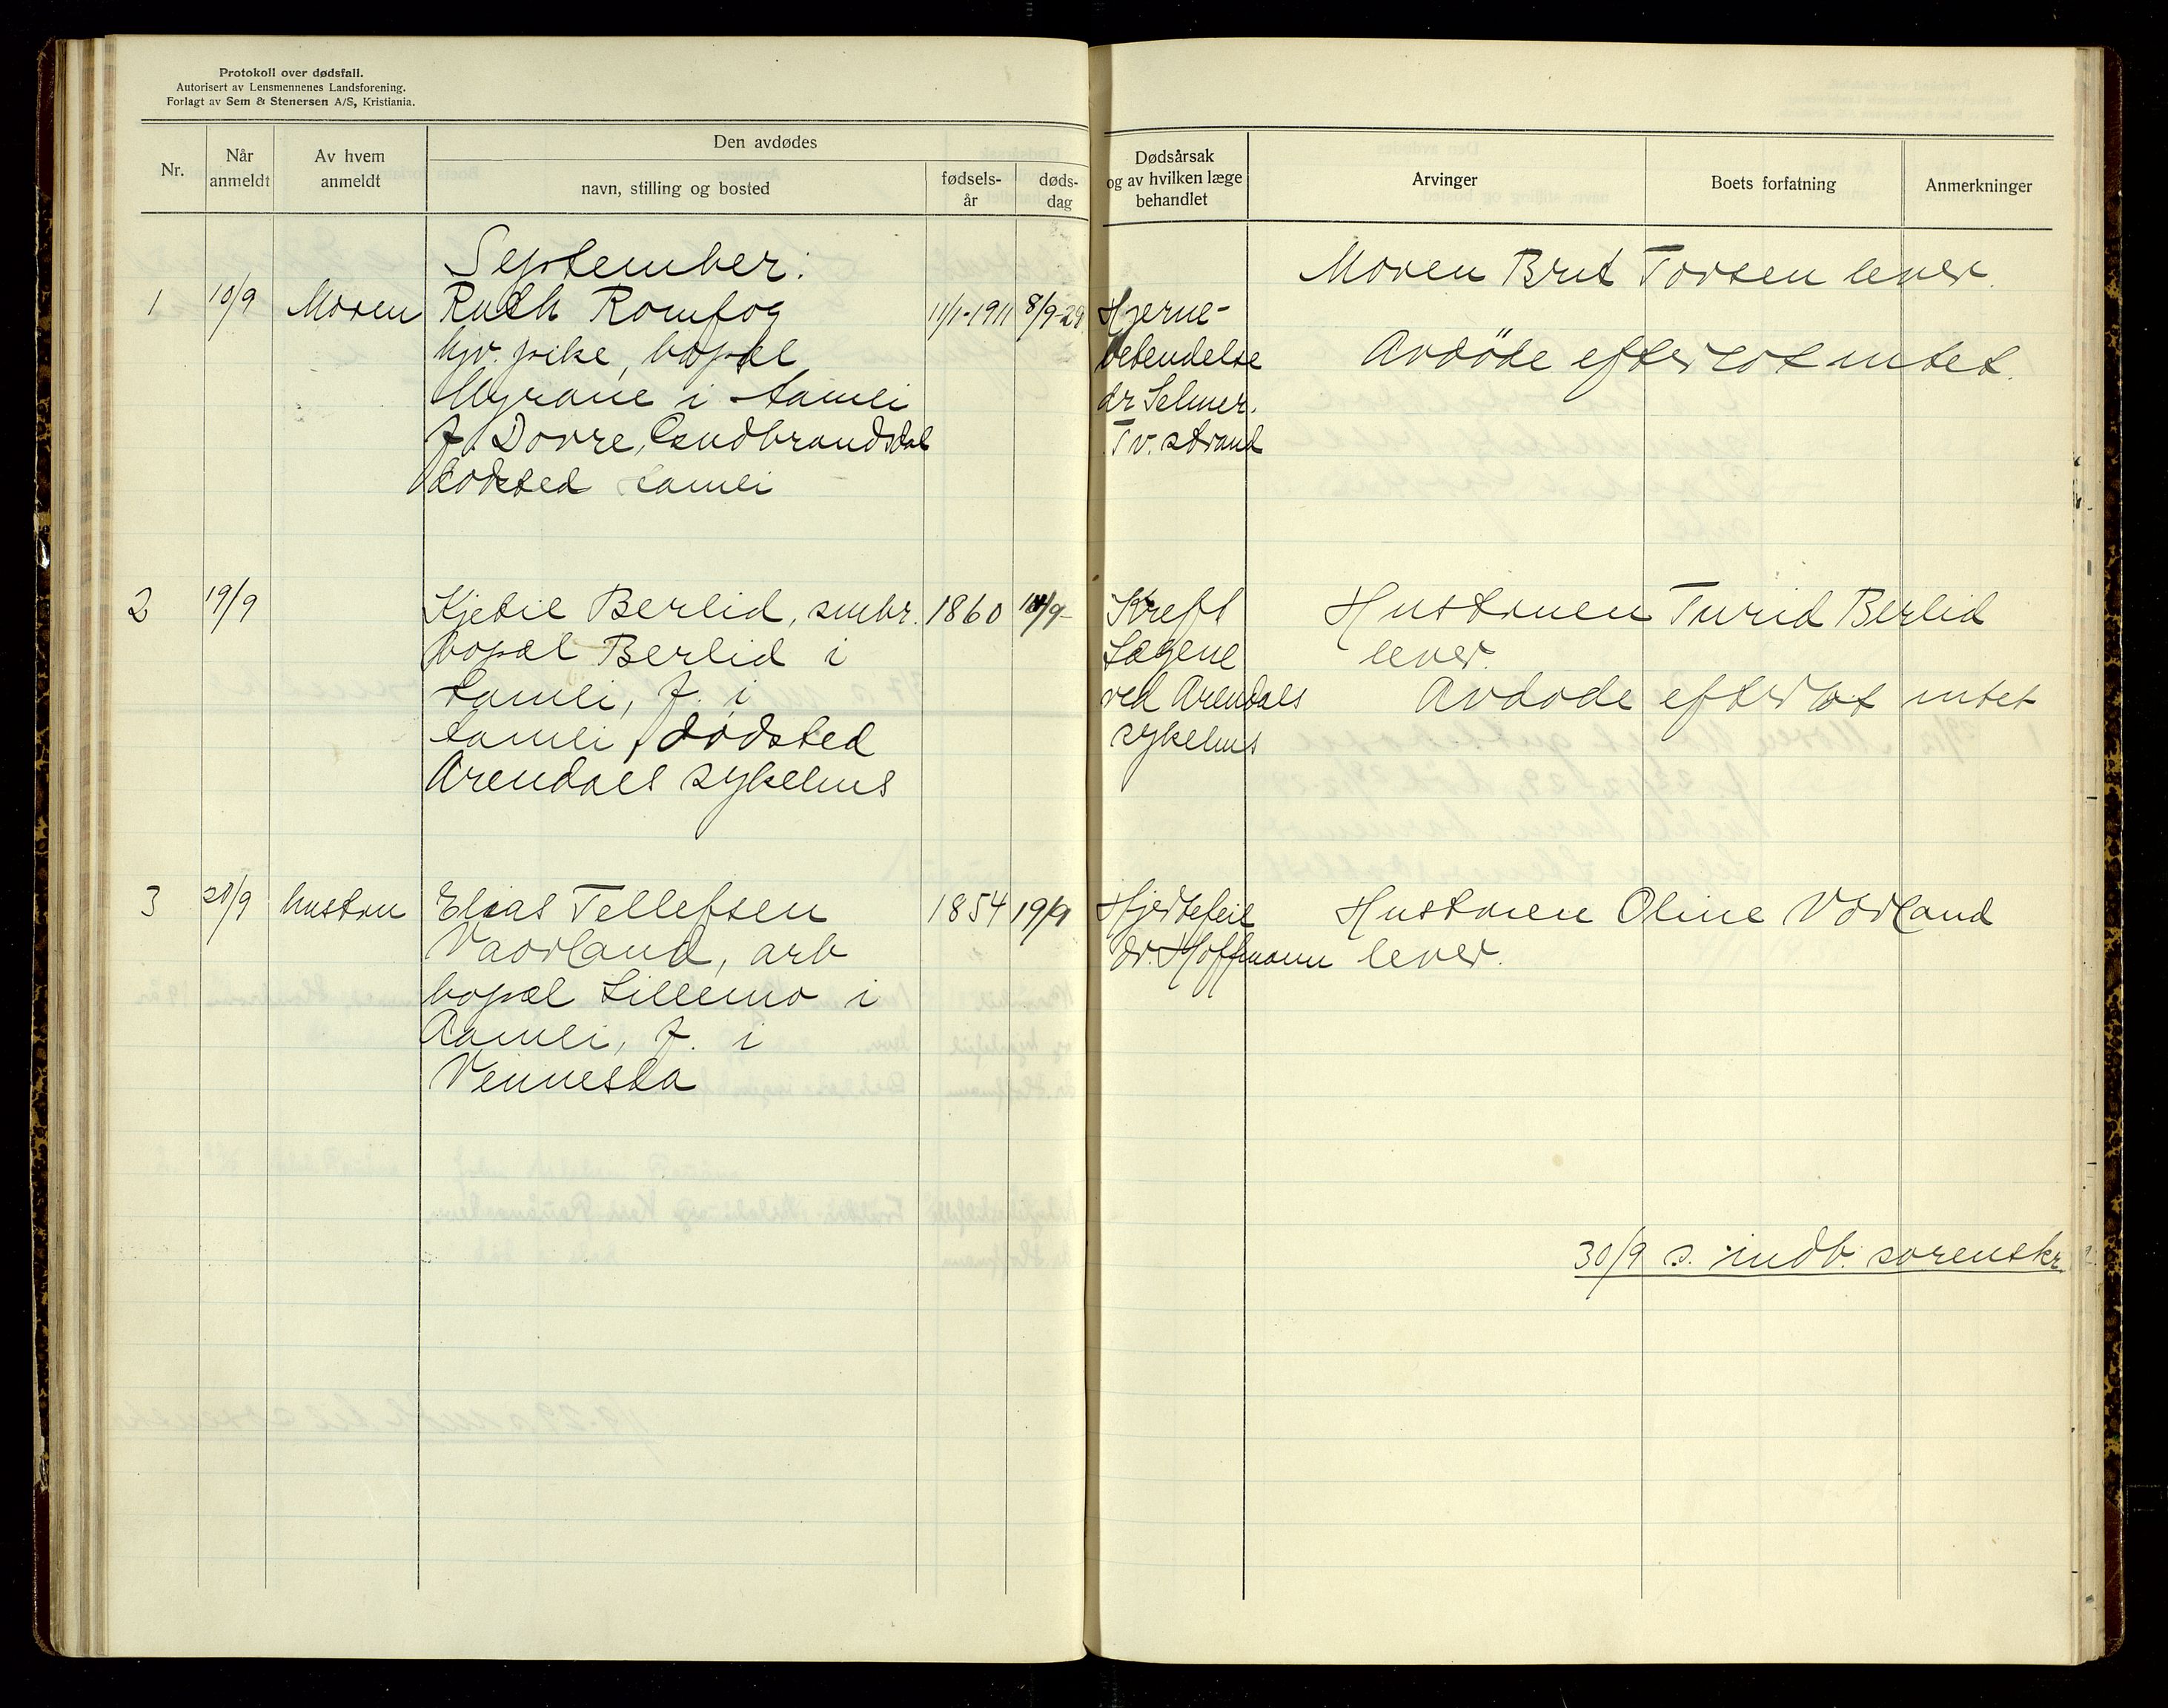 Protokoll over dødsfall.
Autorisert av Lensmennenes Landsforening.
Forlagt av Sem & Stenersen A/S, Kristiania.
Nr.
Når anmeldt
Av hvem anmeldt
Den avdødes
navn, stilling og bosted
fødsels-år
døds-dag
Dødsårsak og av hvilken læge behandlet
Arvinger
Boets forfatning
Anmerkninger
September:
1 10/9 Moren Ruth Romfog 11/1-1911 8/9-29
hjv. pike, bopæl
Myrane i Aamli
f. Dovre, Gudbrandsdal
dødsted Aamli
Hjerne-
betendelse
dr Selmer.
Tv. strand
Moren Brit Torsen lever.
Avdöde efterlot intet.
2 19/9 Kjetil Berlid, smbr. 1860 14/9-
bopæl Berlid i
Aamli, f. i
Aamli, dödsted
Arendals sykehus
Kreft
Lægene
ved Arendals
sykehus
Hustruen Turid Berlid
lever.
Avdöde efterlot intet
3 28/9 hustru Elias Tellefsen 1854 19/9
Vaarland, arb
bopæl Lillemo i
Aamli, f. i
Vennesla
Hjertefeil
dr. Hoffmann
Hustruen Oline Vårland
lever.
30/9 s. indb. sorenskr.